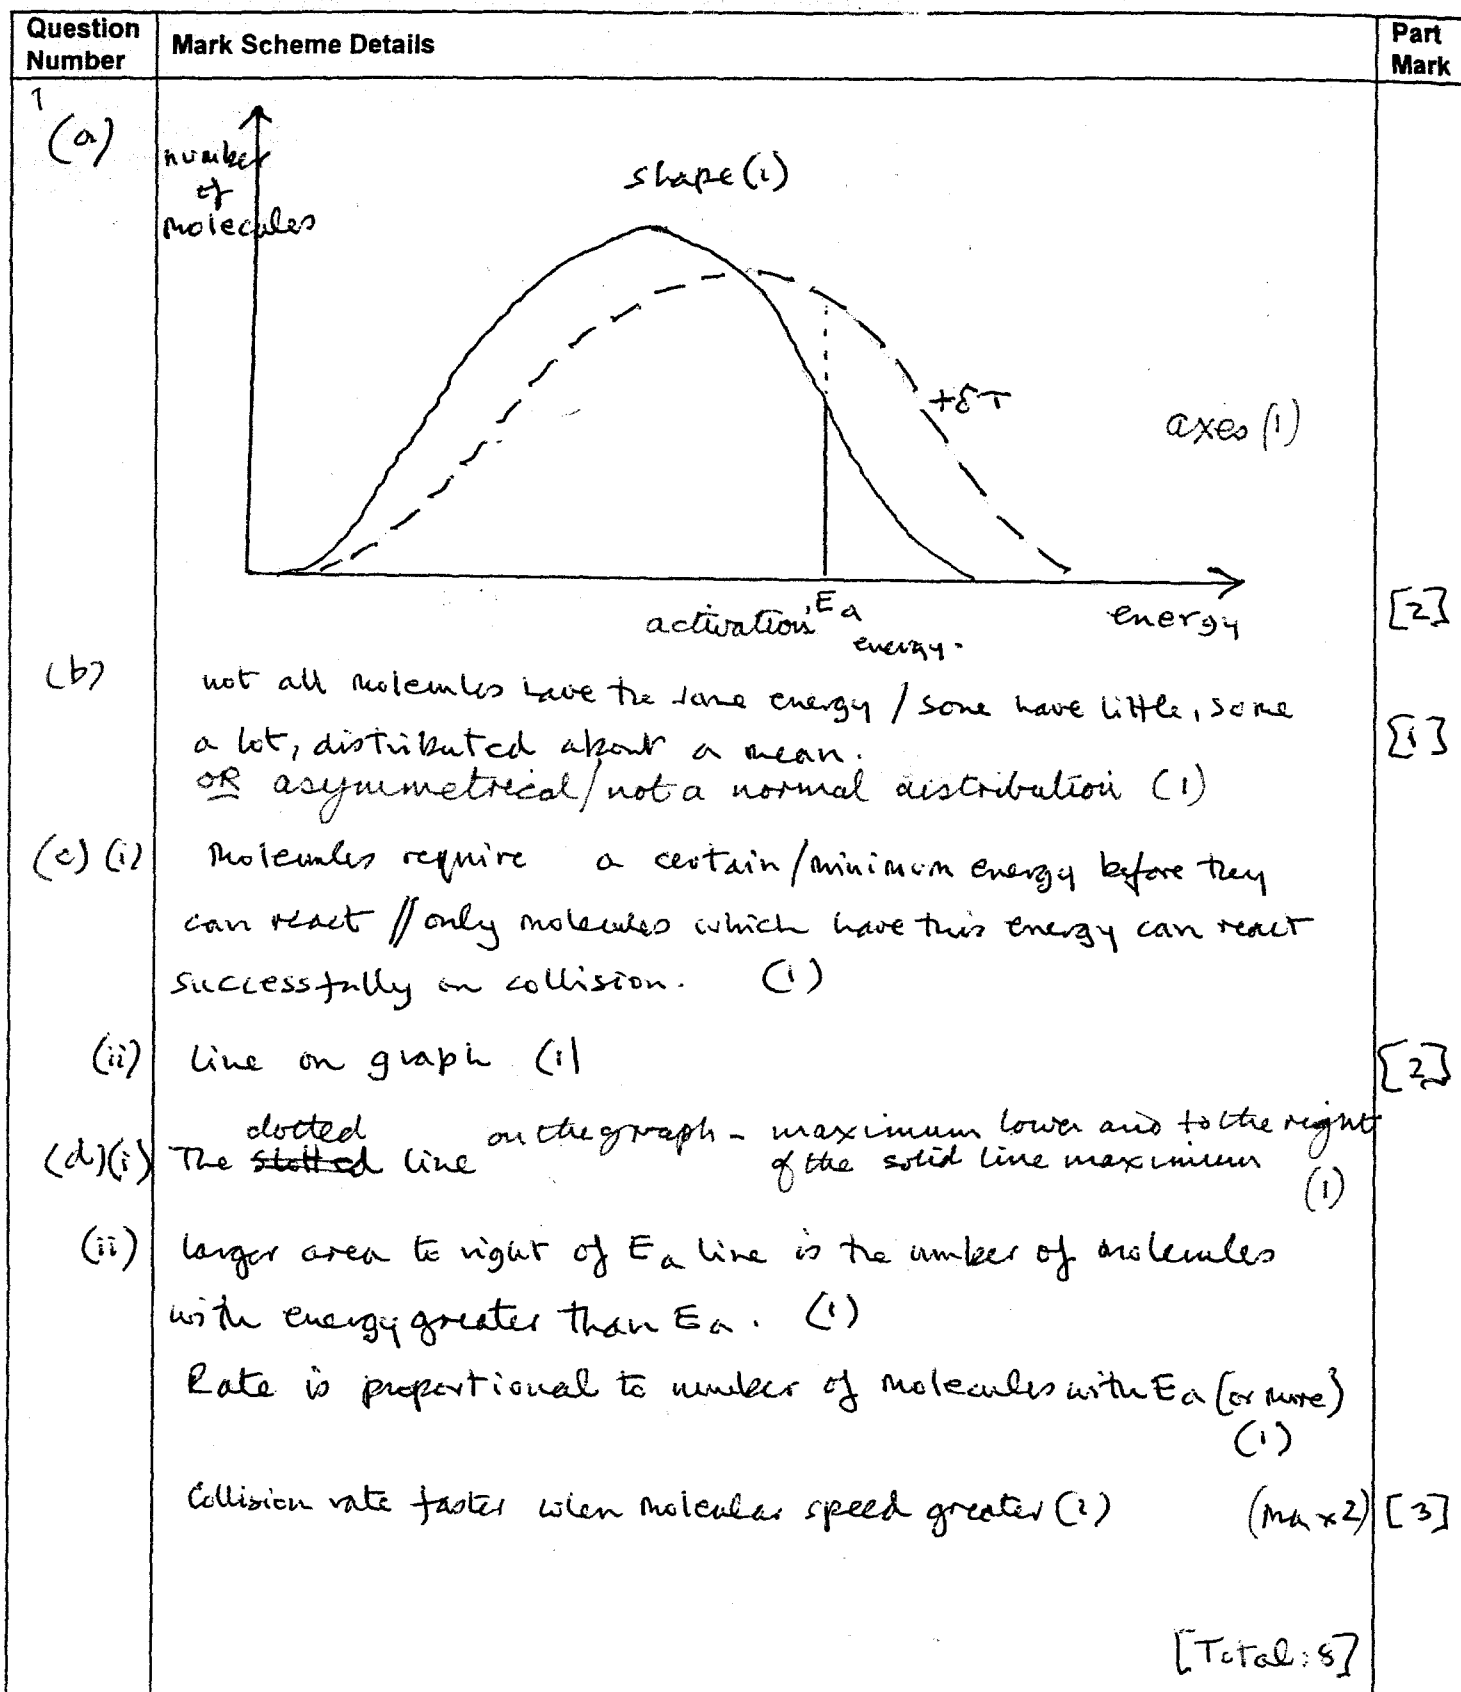 Question Number
Mark Scheme Details
Part Mark
1
(a)
number
of
molecules
shape (1)
+δT
axes (1)
Ea
activation energy.
energy
[2]
(b)
not all molecules have the same energy / some have little, some
a lot, distributed about a mean.
[1]
OR asymmetrical/not a normal distribution (1)
(c) (i)
Molecules require a certain/minimum energy before they
can react // only molecules which have this energy can react
successfully on collision. (1)
(ii)
line on graph (1)
[2]
(d)(i)
The dotted line on the graph - maximum lower and to the right
of the solid line maximum
(1)
(ii)
larger area to right of Ea line is the number of molecules
with energy greater than Ea. (1)
Rate is proportional to number of molecules with Ea (or more)
(1)
Collision rate faster when molecular speed greater (1)
(max 2)
[3]
[Total: 8]